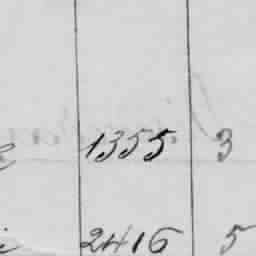 1355 3
2416 5